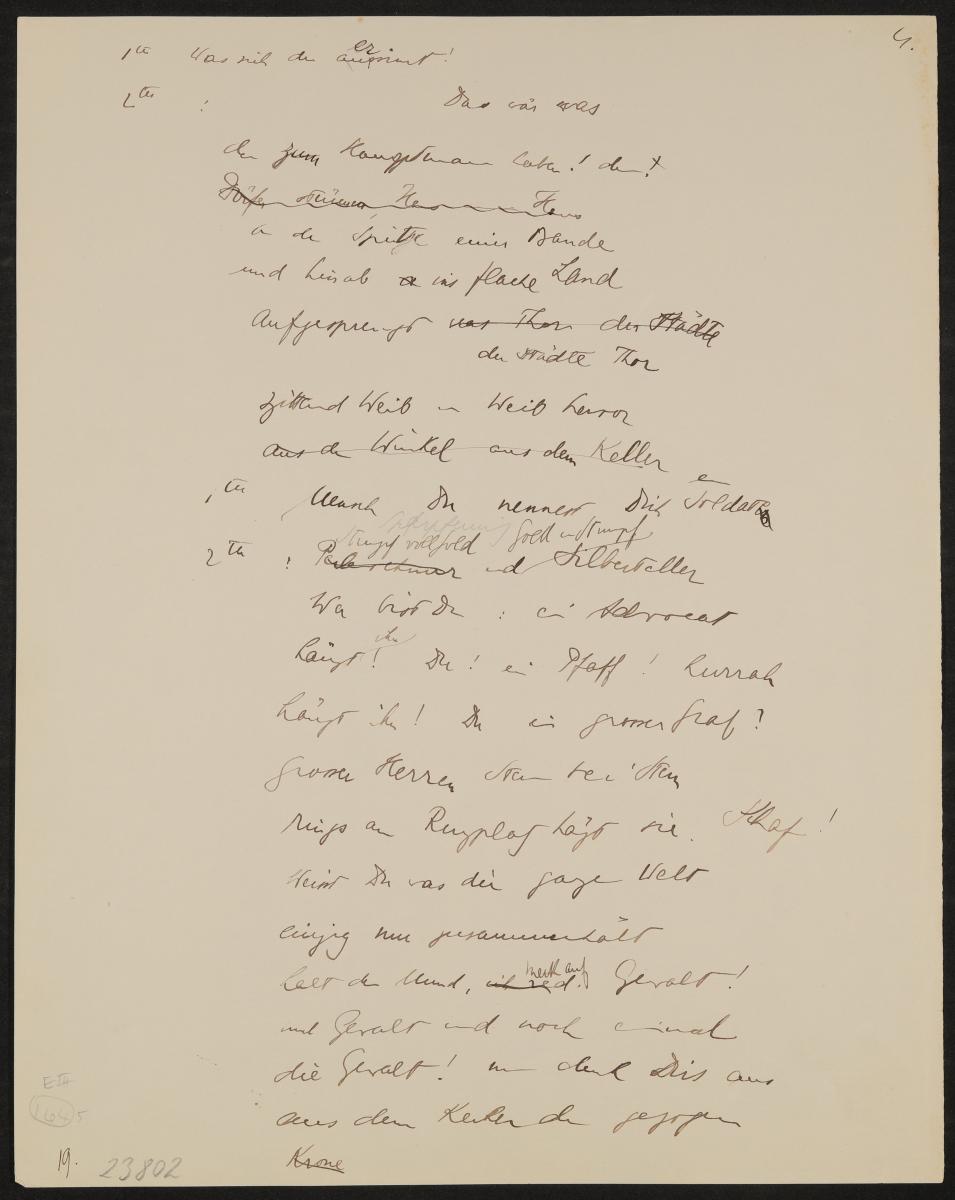 4.
1te Was sich der ersinnt!
2te : Das wär was
den zum Hauptmann haben! den!
Dörfer stürmen, Haus Haus
an der Spitze einer Bande
und hinab ins flache Land
Aufgesprengt das Thor der Städte
der Städte Thor
zitternd Weib um Weib hervor
aus dem Winkel aus dem Keller
1te Mensch Du nennest Dich Soldat
Strumpf voll Gold Gold im Strumpf
2te : und Silberteller
Wer bist Du : ein Advocat
hängt ihn! Du! ein Pfaff! hurrah
hängt ihn! Du ein grosser Graf?
Grosse Herren
rings am Ringplatz hängt sie. Schaf!
Weisst Du was die ganze Welt
einzig nur zusammenhält
halt den Mund, ich red! merk auf Gewalt!
und Gewalt und noch einmal
die Gewalt! nun denk Dirs aus
aus dem Kerker den gezogen
Krone
E III
164 5
19. 23802